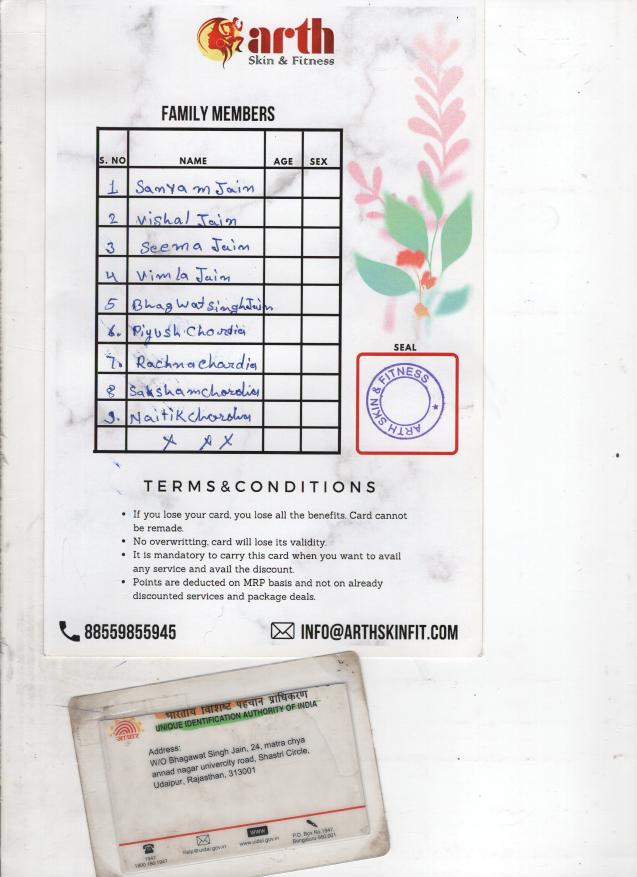 arth
Skin & Fitness
FAMILY MEMBERS
S. NO NAME AGE SEX
1 Sanyam Jain
2 Vishal Jain
3 Seema Jain
4 Vimla Jain
5 Bhagwatsingh Jain
6. Piyush Chordia
7. Rachna chardia
8 Saksham chordia
9. Naitik chordia
X X X
SEAL
ARTH SKIN & FITNESS
TERMS & CONDITIONS
• If you lose your card, you lose all the benefits. Card cannot
be remade.
• No overwritting, card will lose its validity.
• It is mandatory to carry this card when you want to avail
any service and avail the discount.
• Points are deducted on MRP basis and not on already
discounted services and package deals.
88559855945 INFO@ARTHSKINFIT.COM
भारतीय विशिष्ट पहचान प्राधिकरण
UNIQUE IDENTIFICATION AUTHORITY OF INDIA
आधार
Address:
W/O Bhagawat Singh Jain, 24, matra chya
annad nagar univercity road, Shastri Circle,
Udaipur, Rajasthan, 313001
1947
1800 180 1947
help@uidai.gov.in
WWW
www.uidai.gov.in
P.O. Box No.1947,
Bengaluru-560 001